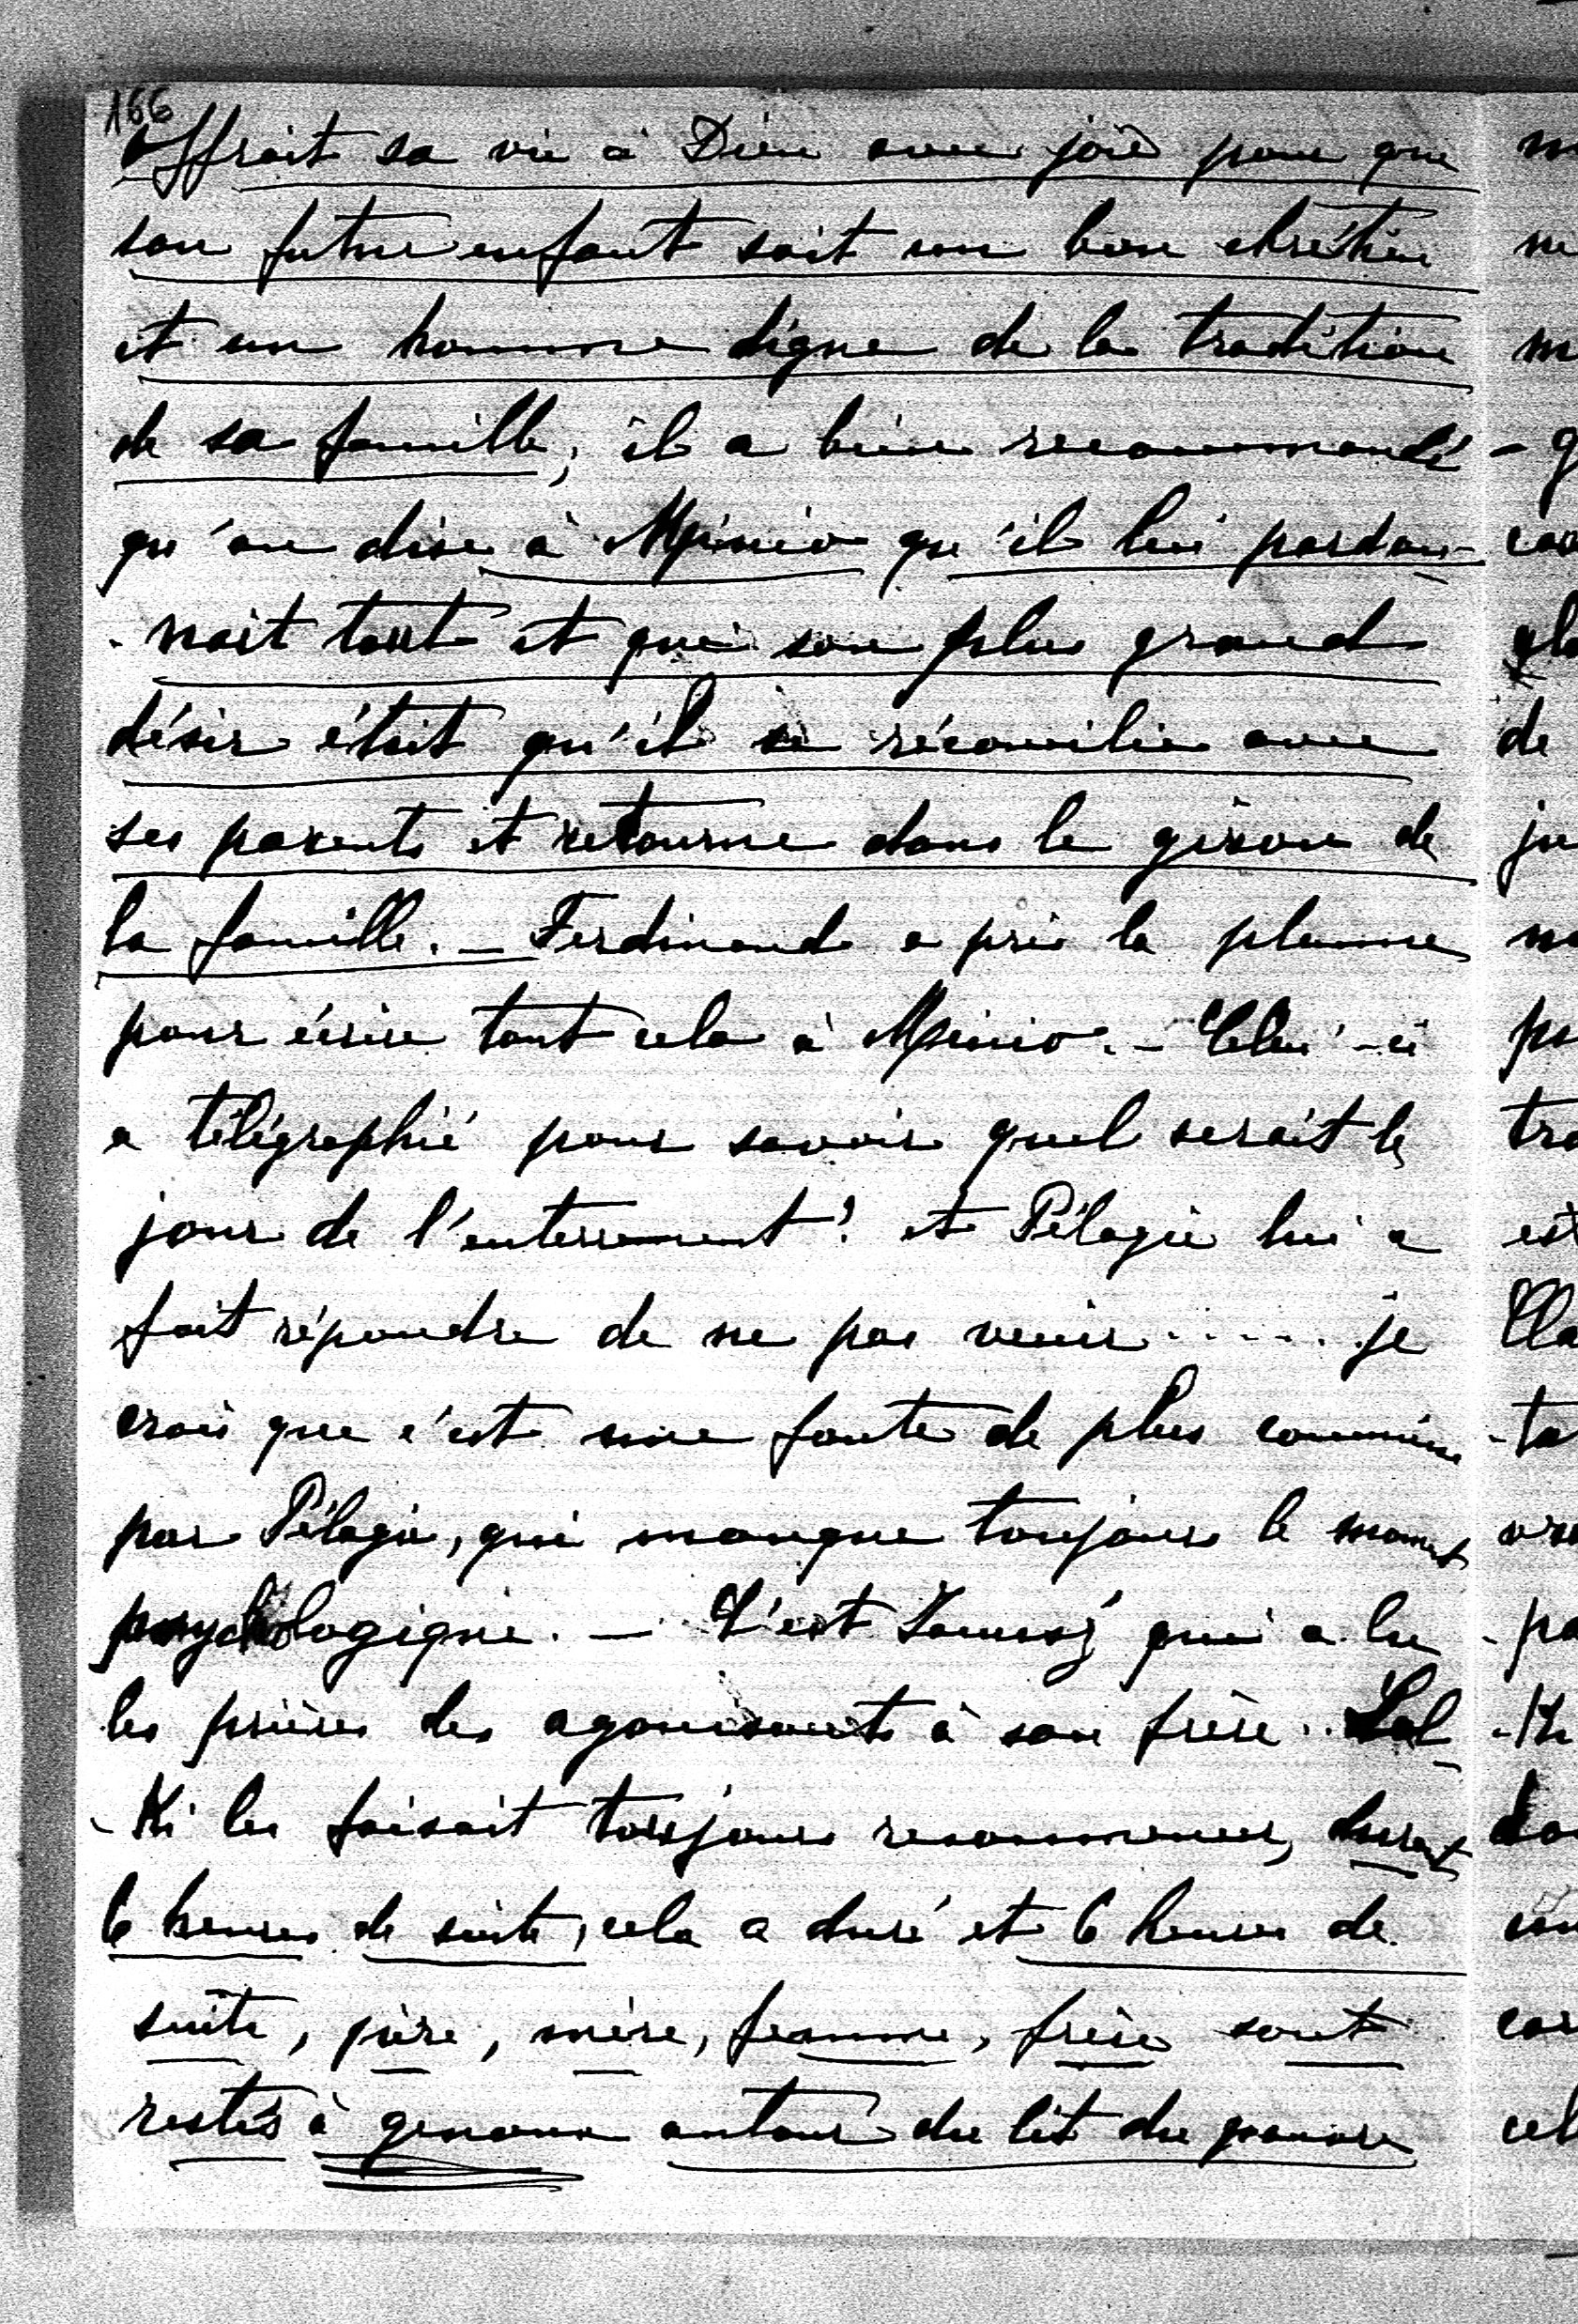 166
offrait sa vie à Dieu avec joie pour que
son futur enfant soit un bon chrétien
et un homme digne de la tradition
de sa famille, il a bien recommandé
qu'on dise à Mimio qu'il lui pardon-
-nait tout et que son plus grand
désir était qu'il se réconcilie avec
ses parents et retourne dans le giron de
la famille. — Ferdinand a pris la plume
pour écrire tout cela à Mimio. — Celui-ci
a télégraphié pour savoir quel serait le
jour de l'enterrement! et Pélagie lui a
fait répondre de ne pas venir ..... je
crois que c'est une faute de plus commise
par Pélagie, qui manque toujours le moment
psychologique. — C'est qui a lu
les prières des agonisants à son frère. Lol-
-Ki les faisait toujours recommencer, durant
6 heures de suite, cela a duré et 6 heures de
suite, père, mère, femme, frère sont
restés à genoux autour du lit du pauvre